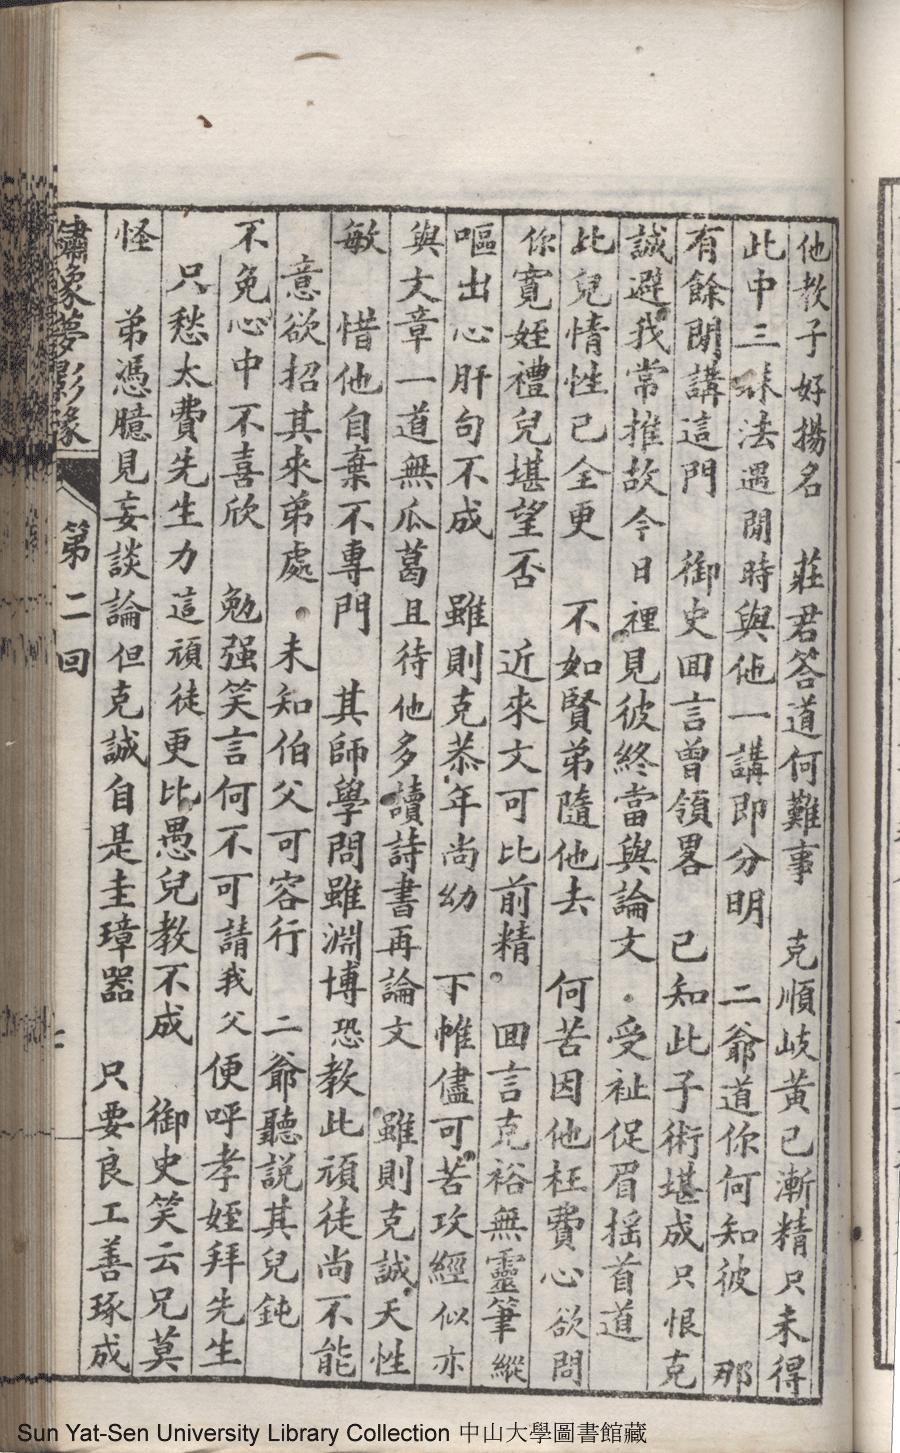 他教子好揚名　莊君答道何難事　克順岐黃已漸精只未得
此中三昧法遇閒時與佗一講即分明　二爺道你何知彼　那
有餘閒講這門　御史回言曾領畧　已知此子術堪成只恨克
誠避我常推故今日裡見彼終當與論文　受祉促眉揺首道
此兒情性已全更　不如賢弟隨他去　何苦因他枉費心欲問
你寬姪禮兒堪望否　近來文可比前精　回言克裕無靈筆縱
嘔出心肝句不成　雖則克恭年尚幼　下帷儘可苦攻經似亦
與文章一道無瓜葛且待他多讀詩書再論文　雖則克誠天性
敏　惜他自棄不專門　其師學問雖淵博恐教此頑徒尚不能
意欲招其來弟處　未知伯父可容行　二爺聽説其兒鈍
不免心中不喜欣　勉强笑言何不可請我父便呼孝姪拜先生
只愁太費先生力這頑徒更比愚兒教不成　御史笑云兄莫
怪　弟憑臆見妄談論但克誠自是圭璋器　只要良工善琢成
繡象夢影緣　第二回
Sun Yat-Sen University Library Collection 中山大學圖書館藏